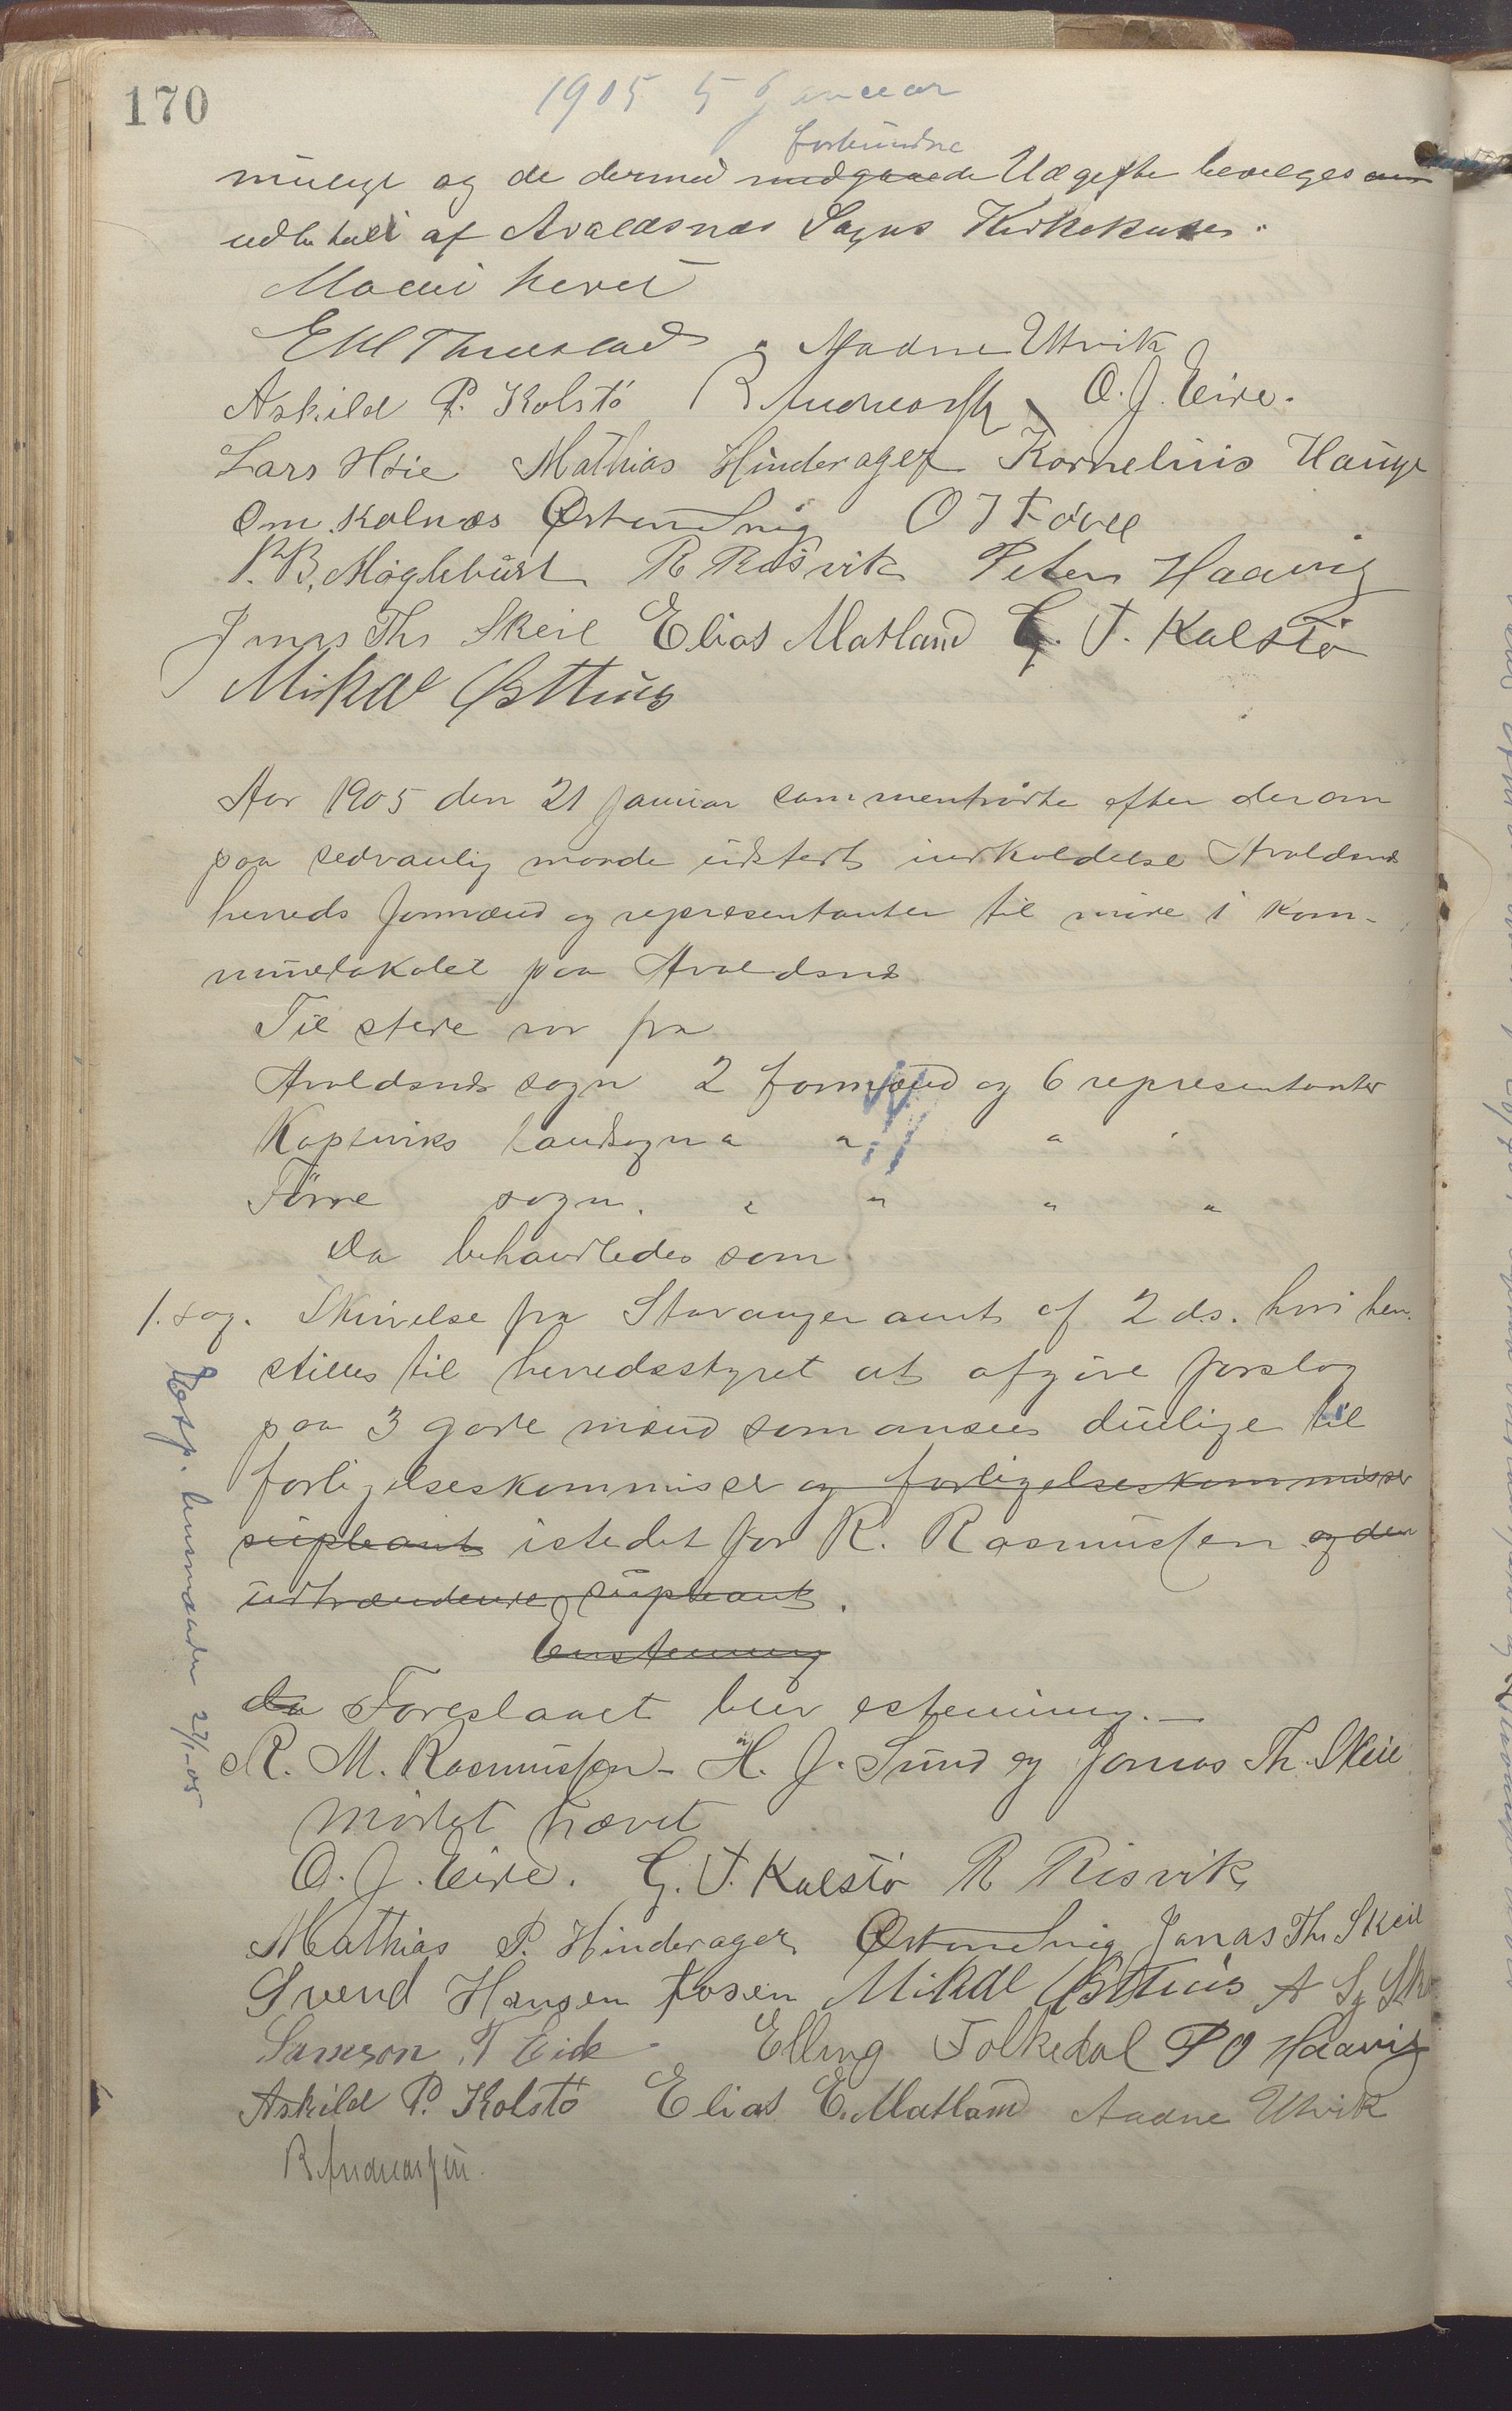 170
1905 5 Januar
forbundne
muligt og de dermed medgaaede Udgifter bevelges
udbetalt af Avaldsnes Sogns Kirkekasse.
Mødet hevet
Aadne Utvik
Askild P. Kolstö R Andreassen O. J. Eide.
Lars Höie Mathias Hinderager Kornelius Hauge
Om. Kolnes O J Förre
P. B. Møglebust R Risvik Peter Haavig
Jonas Th. Skeie Elias Matland G. T. Kalstø
Mikal Østhus
Aar 1905 den 21 januar sammentraadte efter derom
paa sedvanlig maade udstedt indkaldelse Avaldsnes
herreds formænd og representanter til möde i kom-
munelokalet paa Avaldsnes
Til stede var fra
Avaldsnes sogn 2 formænd og 6 representanter
Kopeviks landsogn " " " "
Förre sogn. " " " "
Da behandledes som
1. sag. Skrivelse fra Stavanger amt af 2 ds. hvori hen-
stilles til herredsstyret at afgive forslag
paa 3 gode mænd som ansees duelige til
forligelseskommisær og forligelseskommissær
supleant istedet for R. Rasmussen og den
udtrædende supleant.
Enstemmig
da Foreslaaet blev estemmig.
R. M. Rasmussen - H. J. Sund og Jonas Th. Skeie
Mödet hævet
O. J. Eide. G. T. Kalstø R Risvik
Mathias P. Hinderager Jonas Th. Skeie
Svend Hansen Fosen Mikal Østhus
Samson T Eide Elling Folkedal P O Haavig
Askild P. Kolstö Elias E. Matland Aadne Utvik
R Andreassen.
Exp. lensmanden 27/1-05